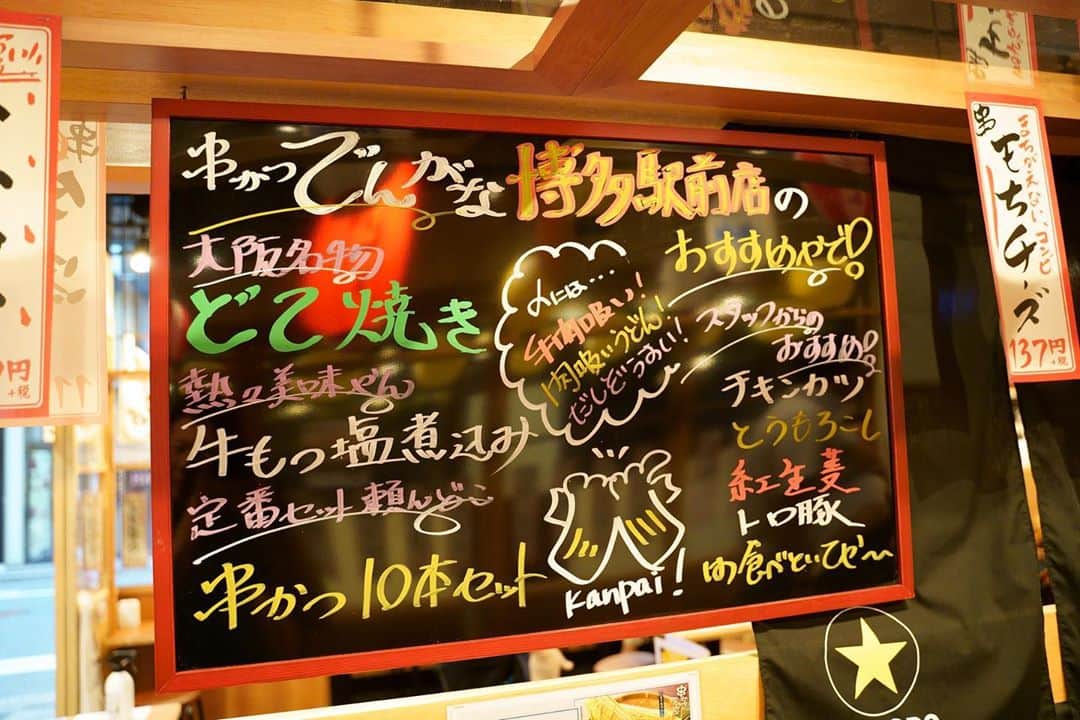 串かつでんがな博多駅前店の
おすすめやで!
大阪名物
どて焼き
熱々美味やん
牛もつ塩煮込み
定番セット頼んどこ
串かつ10本セット
〆には…
牛肉吸い!
肉吸いうどん!
だしとぅうまい!
Kanpai!
スタッフからの
おすすめ!
チキンカツ
とうもろこし
紅生姜
トロ豚
食べといてや〜
串
もちチーズ
まちがえない、コンビ
137円
+税
円
+税